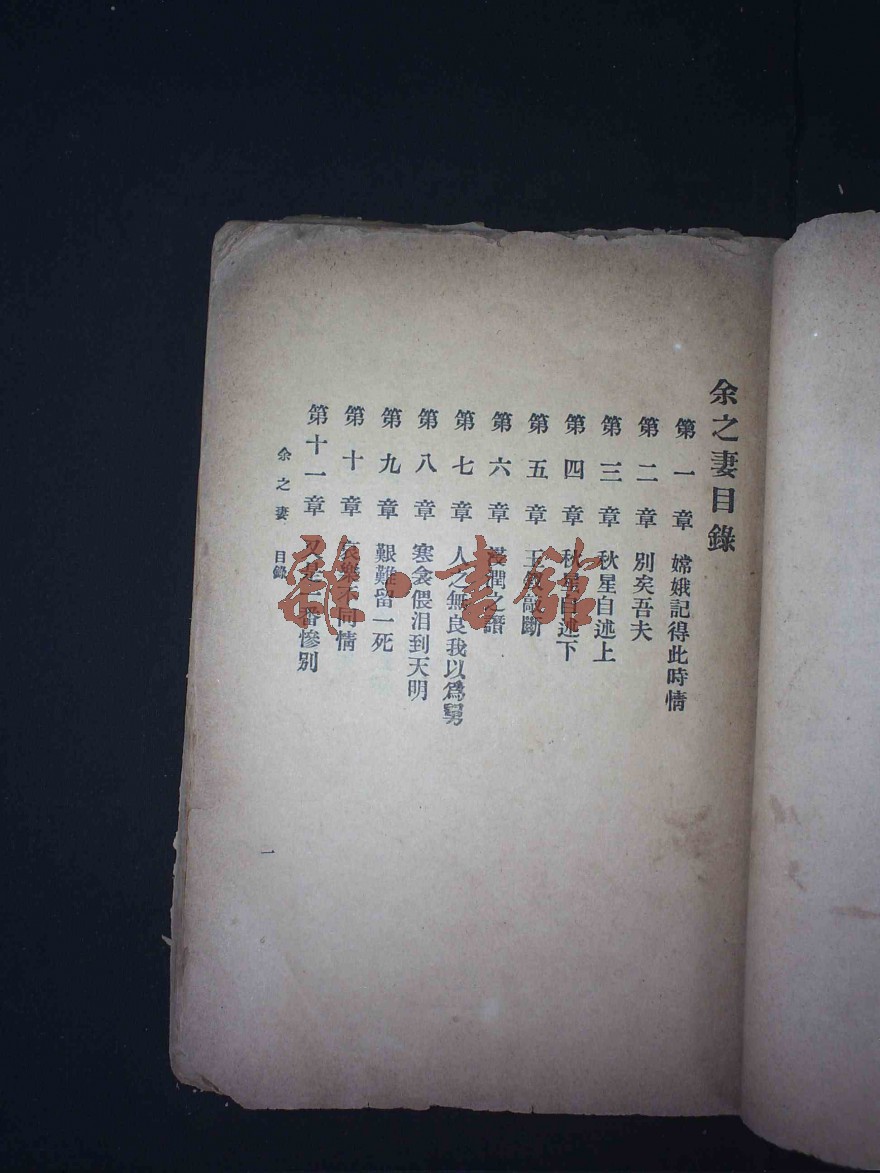 余之妻目錄
第一章 嫦娥記得此時情
第二章 別矣吾夫
第三章 秋星自述上
第四章 秋星自述下
第五章 玉釵敲斷
第六章 浸潤之譖
第七章 人之無良我以爲舅
第八章 寒衾偎泪到天明
第九章 艱難留一死
第十章 哀樂不同情
第十一章 又是一番慘別
余之妻 目錄
一
雜·書館